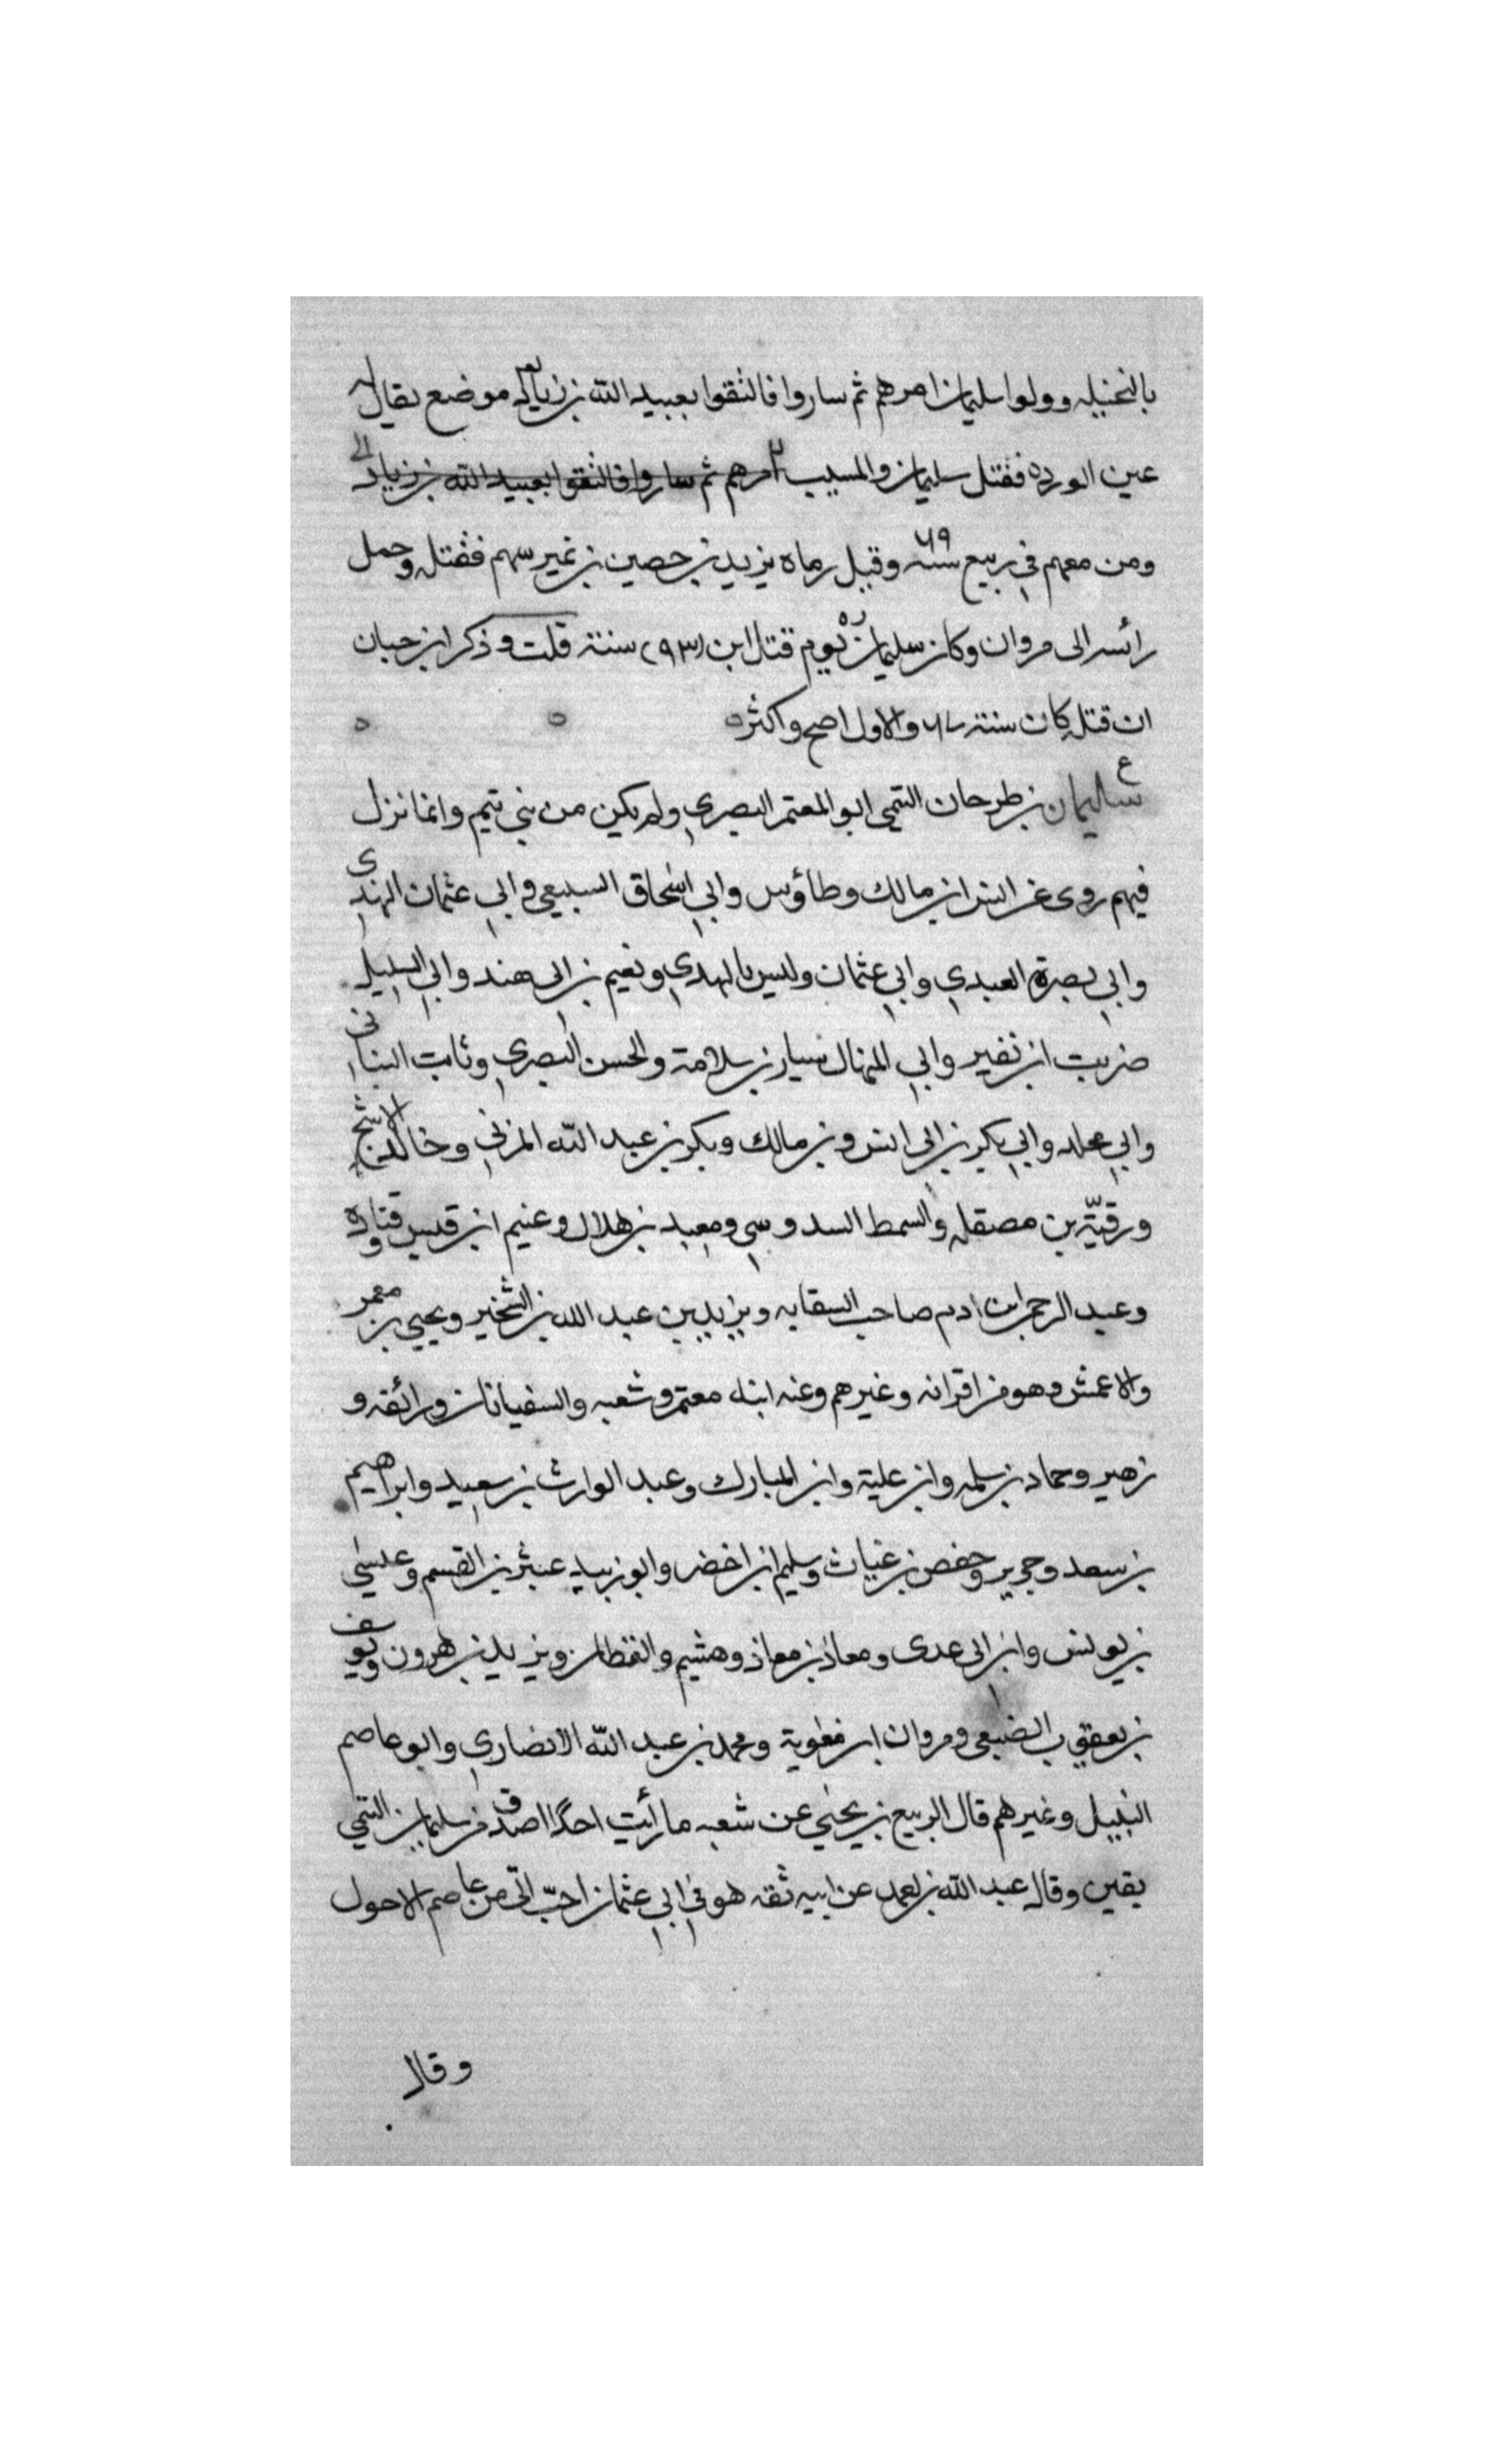 بالنخيله وولوا سليمان امرهم ثم ساروا فالتقوا بعبيد الله بن زياد موضع يقال له
عين الورده فقتل سليمان والمسيب امرهم ثم ساروا فالتقوا بعبيد الله بن زياد
ومن معهم في ربيع سنه وقيل رماه يزيد بن حصين بن نمير سهم فقتله وحمل
رأسه الى مروان وكان سليمان يوم قتل ابن (٩٣) سنته قلت وذكر ابن حبان
ان قتله كان سنته ٦٧ والاول اصح واكثر
ع
سليمان بن طرحان التيمى ابو المعتمر البصري ولم يكن من بني تيم وانما نزل
فيهم روى عن انس ابن مالك وطاؤس وابي اسحاق السبيعي وابي عثمان الهندي
وابي بصرة العبدي وابي عثمان وليس بالهدي ونعيم بن ابى هند وابي السليل
ضريب ابن نفير وابي المنهال سيار بن سلامة والحسن البصري وثابت البناني
وابي مجلد وابي بكير بن ابى انس وبن مالك وبكر بن عبد الله المزني وخالد الاشج
ورقيّة بن مصقله والسمط السدوسي ومعبد بن هلال وغنيم ابن قيس وقتاده
وعبد الرحمن ابن ادم صاحب السقايه ويزيد بن عبد الله بن الشخير ويحيى بن معمر
والاعمش وهو من اقرانه وغيرهم وعنه ابنه معتمر وشعبه والسفيانان وزائقه و
زهير وحماد بن سلمه وابن علية وابن المبارك وعبد الوارث بن سعيد وابراهيم
بن سعد وجرير وحفص بن غياث وسليم ابن اخضر وابو زبيد عبثر بن القسم وعيسى
بن يونس وابن ابى عدى ومعاذ بن معاذ وهشيم والقطان ويزيد بن هرون ويوسف
بن يعقوب الضبعى ومروان ابن معٰوية ومحمد بن عبد الله الانصاري وابو عاصم
النبيل وغيرهم قال الربيع بن يحيٰي عن شعبه ما رأيت احدًا اصدق من سليمان التيمي
يقين وقال عبد الله بن احمد عن ابيه ثقه هو في ابي عثمان احبّ اليّ من عاصم الاحول
وقال